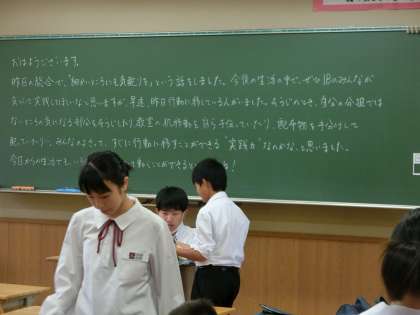 おはようございます。
昨日の総合で、「細かいところにも気配りを」という話をしました。今後の生活の中で、ぜひ1Bのみんなが
気づいて実践してほしいなと思いますが、早速、昨日行動に移している人がいました。そうじのとき、自分の分担では
ないところの気になる部分をそうじしたり、教室の机移動を自ら手伝っていたり、配布物を手分けして
配っていたり…。みんなのきって、すぐに行動に移すことができる"実践力"なのかな、と思いました。
今日からの生活でも、 動くことができると